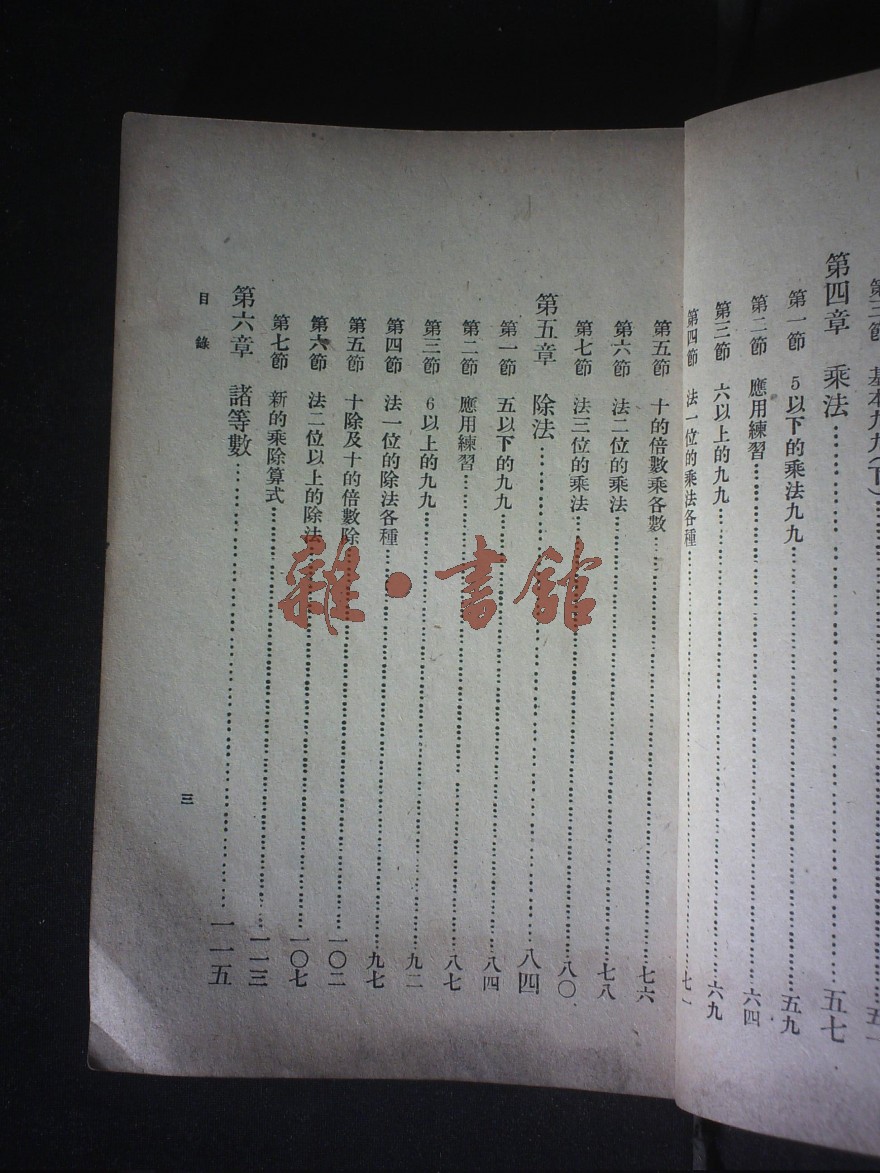 第三節 基本九九(下)
第四章 乘法……五七
第一節 5以下的乘法九九……五九
第二節 應用練習……六四
第三節 六以上的九九……六九
第四節 法一位的乘法各種……七一
第五節 十的倍數乘各數……七六
第六節 法二位的乘法……七八
第七節 法三位的乘法……八〇
第五章 除法……八四
第一節 五以下的九九……八四
第二節 應用練習……八七
第三節 6以上的九九……九二
第四節 法一位的除法各種……九七
第五節 十除及十的倍數除……一〇二
第六節 法二位以上的除法……一〇七
第七節 新的乘除算式……一一三
第六章 諸等數……一一五
目錄 三
雜·書館